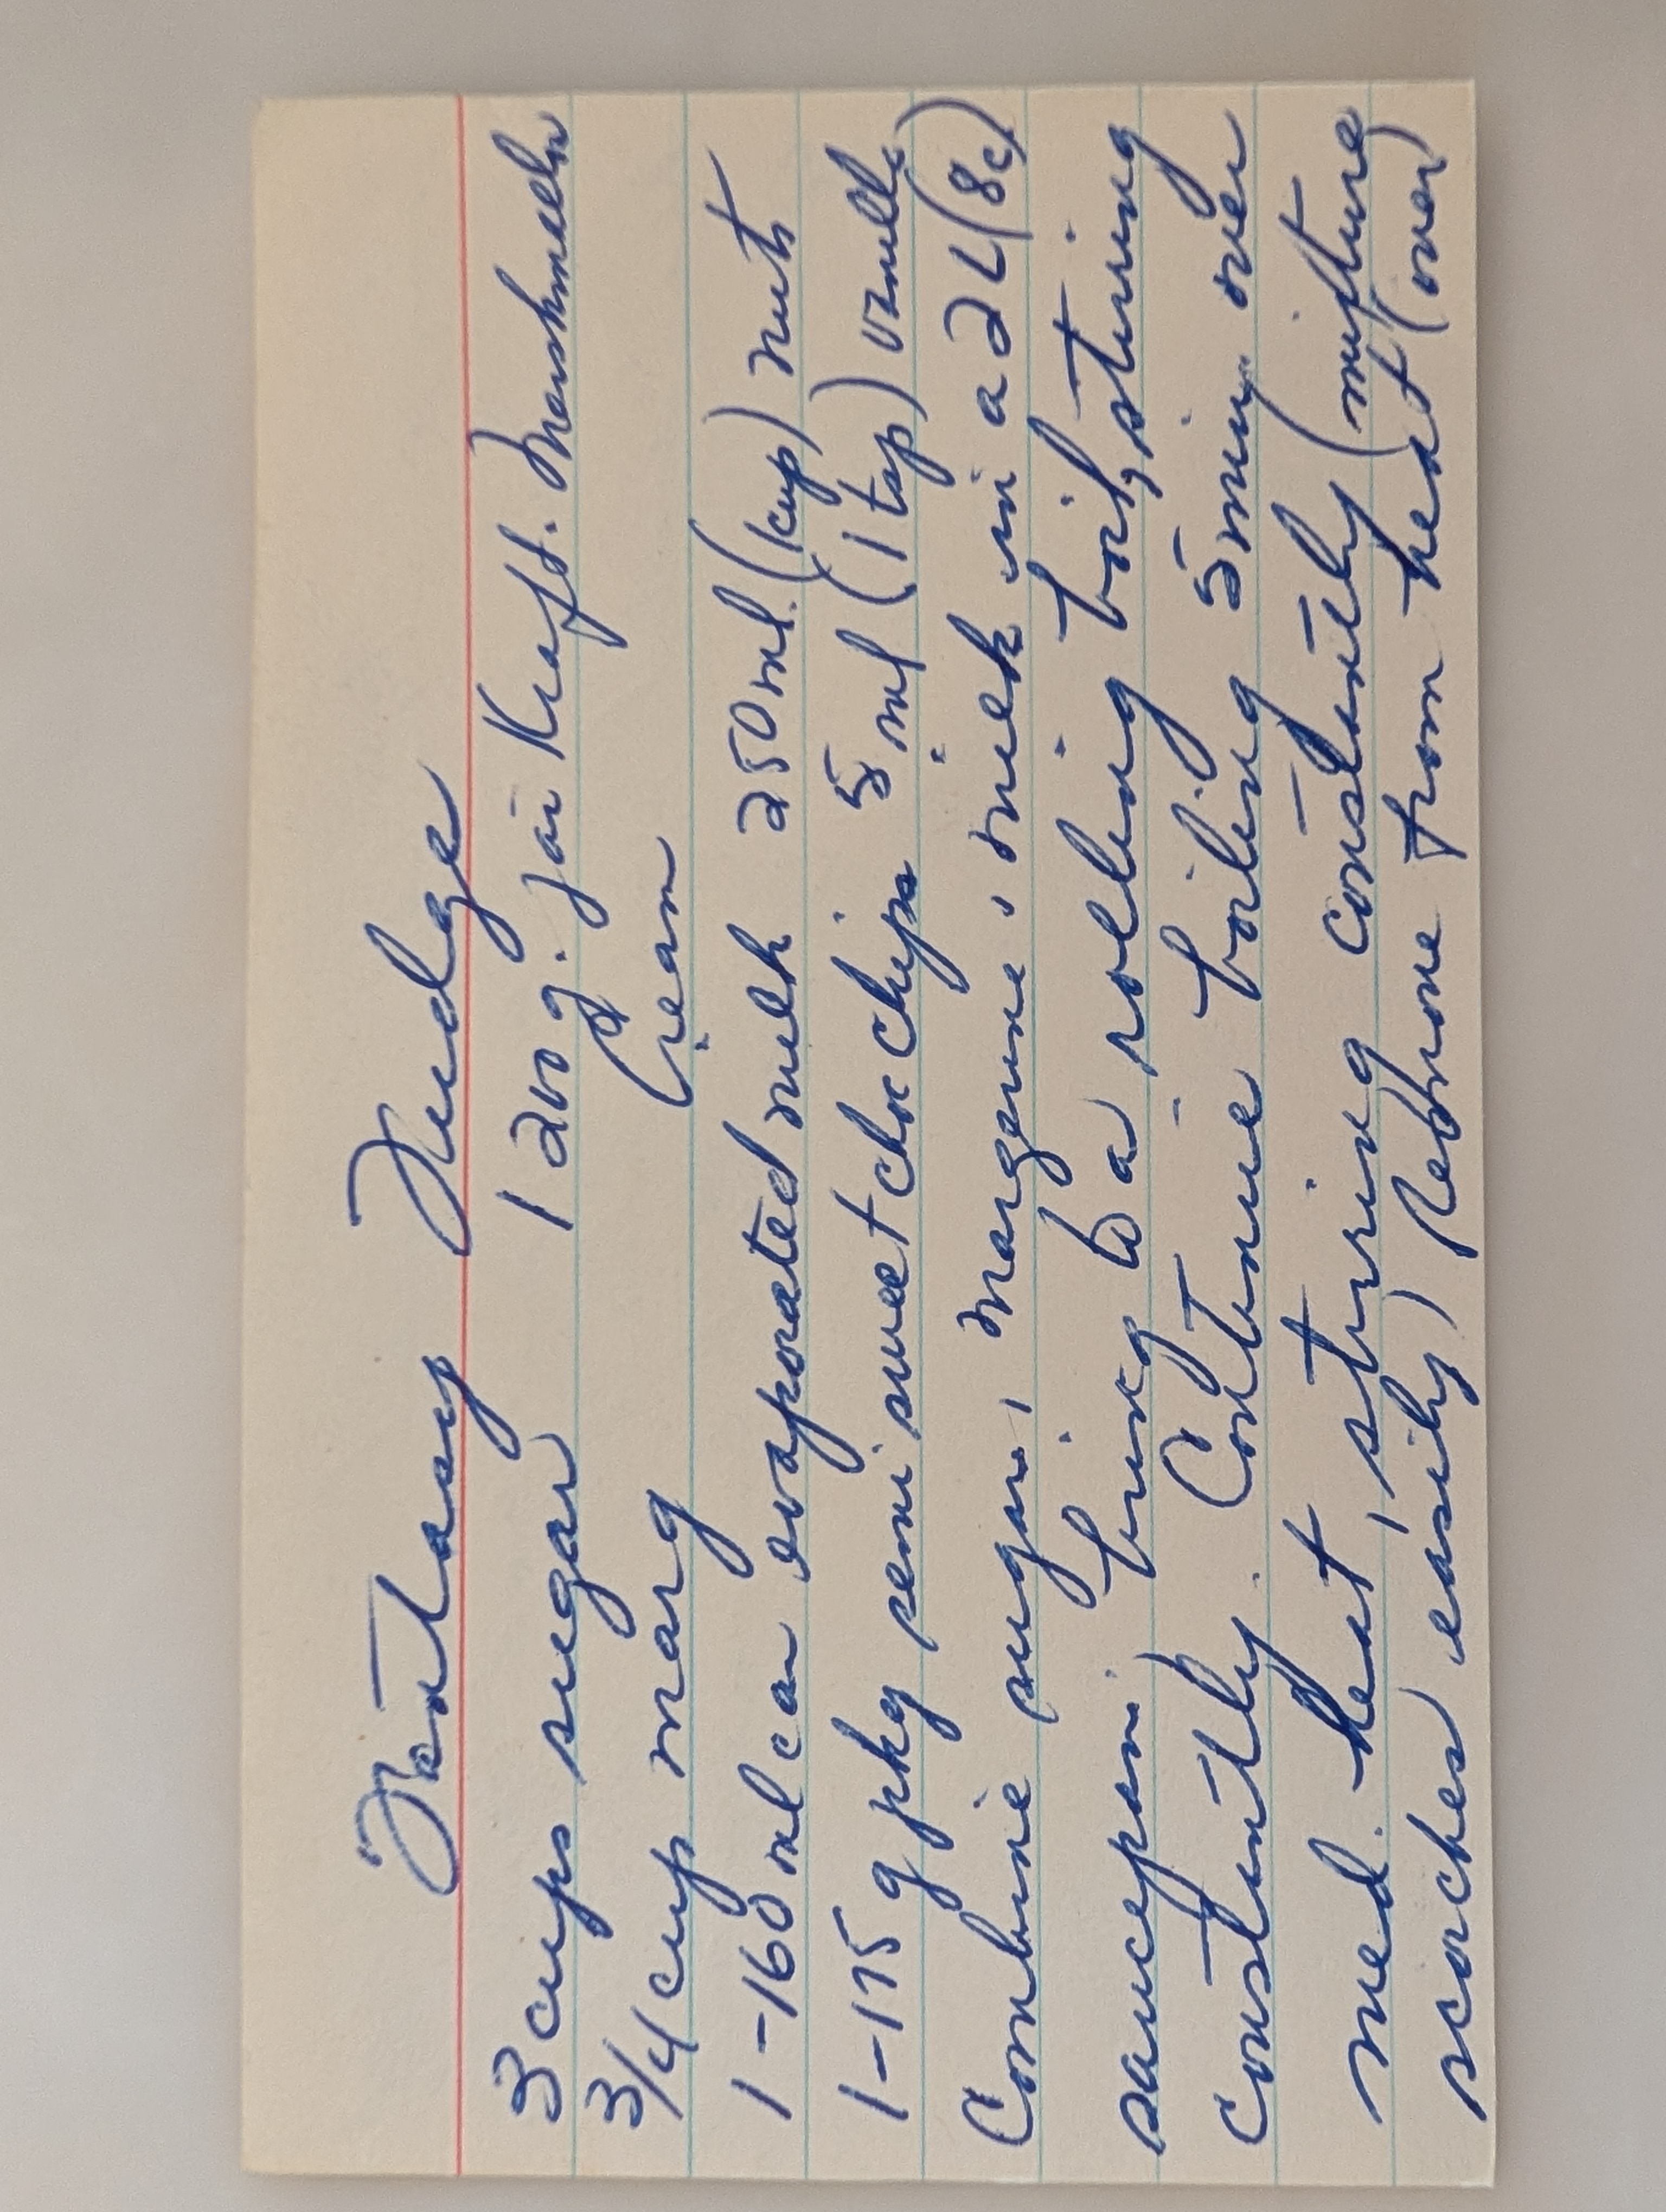 Fantasy Fudge
3 cups sugar 1 200 g. jar Kraft. Marshmallow
3/4 cup marg Cream
1-160 ml can evaporated milk 250 ml. (1 cup) nuts
1-175 g pkg semi sweet choc chips 5 ml (1 tsp) vanilla
Combine sugar, margerine, milk in a 2 L (8c)
saucepan; bring to a rolling boil, stirring
constantly. Continue boiling 5 min. over
med. heat, stirring constantly (mixture
scorches easily) Remove from heat (over)